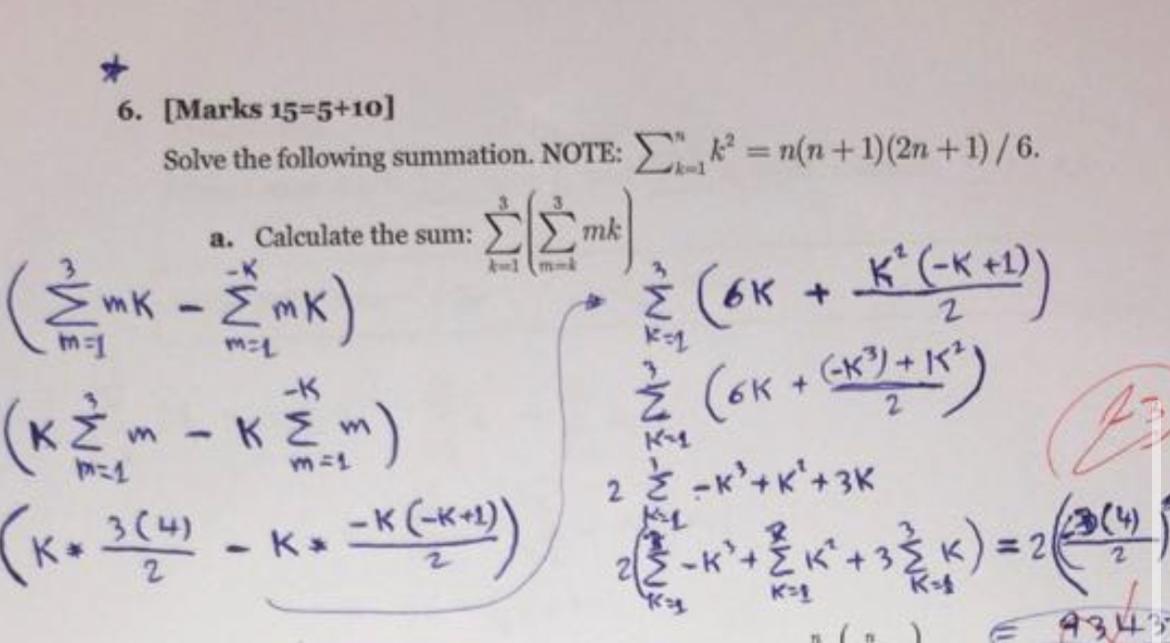 *
6. [Marks 15=5+10]
Solve the following summation. NOTE: ∑ⁿₖ₌₁ k² = n(n + 1)(2n + 1) / 6.
a. Calculate the sum: ∑_{k=1}^{3} ( ∑_{m=k}^{3} mk )
( ∑_{m=1}^{3} mK - ∑_{m=1}^{-K} mK )
( K ∑_{m=1}^{3} m - K ∑_{m=1}^{-K} m )
( K * 3(4)/2 - K * -K(-K+1)/2 )
∑_{K=1}^{3} ( 6K + K²(-K+1)/2 )
∑_{K=1}^{3} ( 6K + (-K³)+K²/2 )
2 ∑_{K=1} -K³+K²+3K
2( ∑_{K=1} -K³ + ∑_{K=1} K² + 3 ∑_{K=1}^{3} K ) = 2( 3(4)/2
=